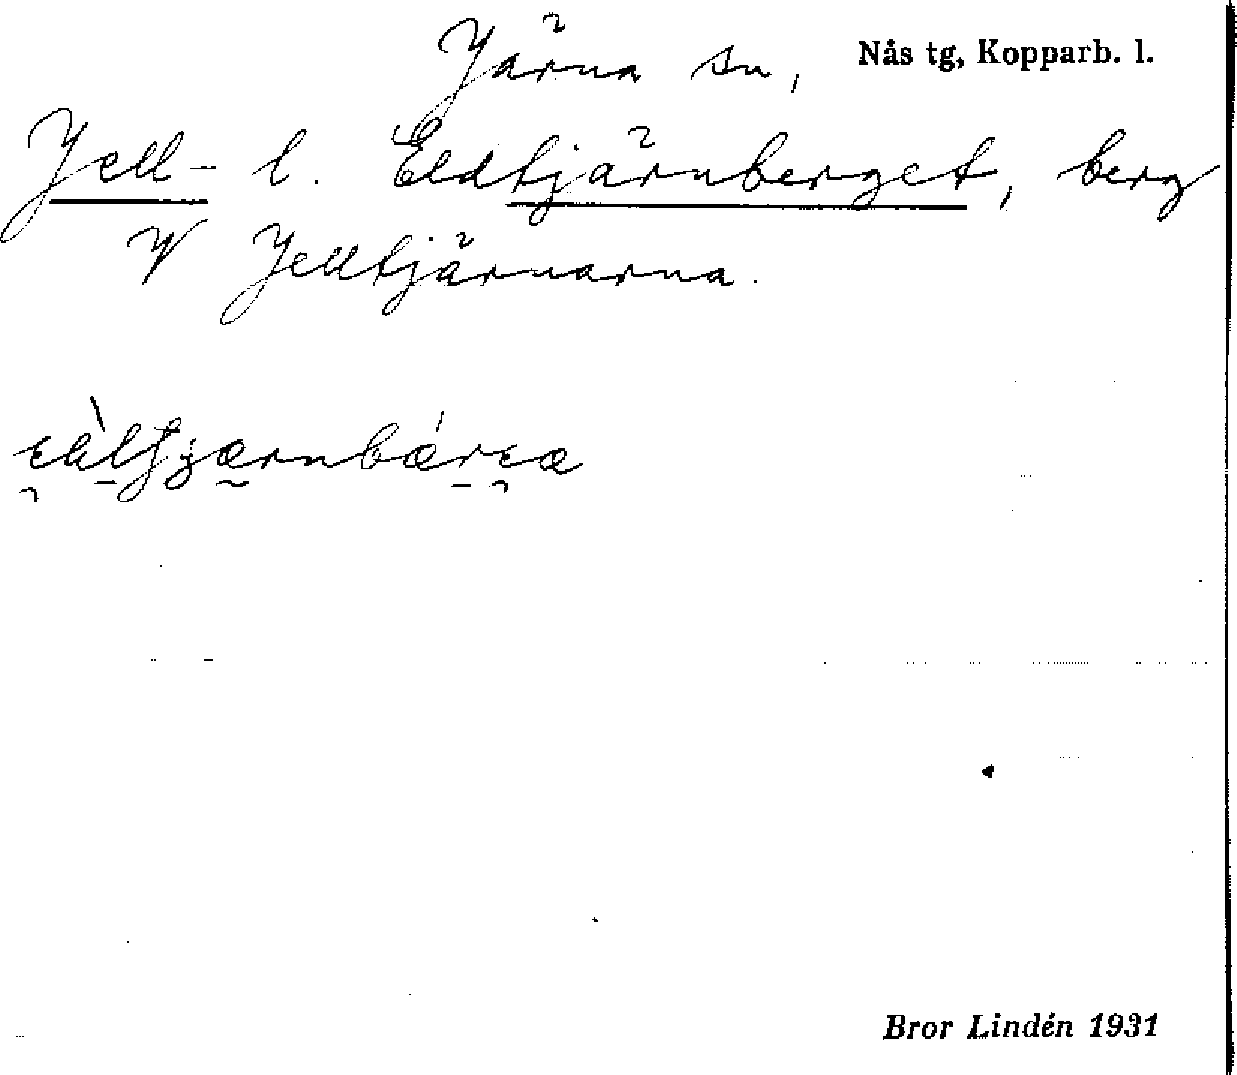 Järna sn, Nås tg, Kopparb. l.
Jell- l. Eldtjärnberget, berg
V Jelltjärnarna.
Bror Lindén 1931